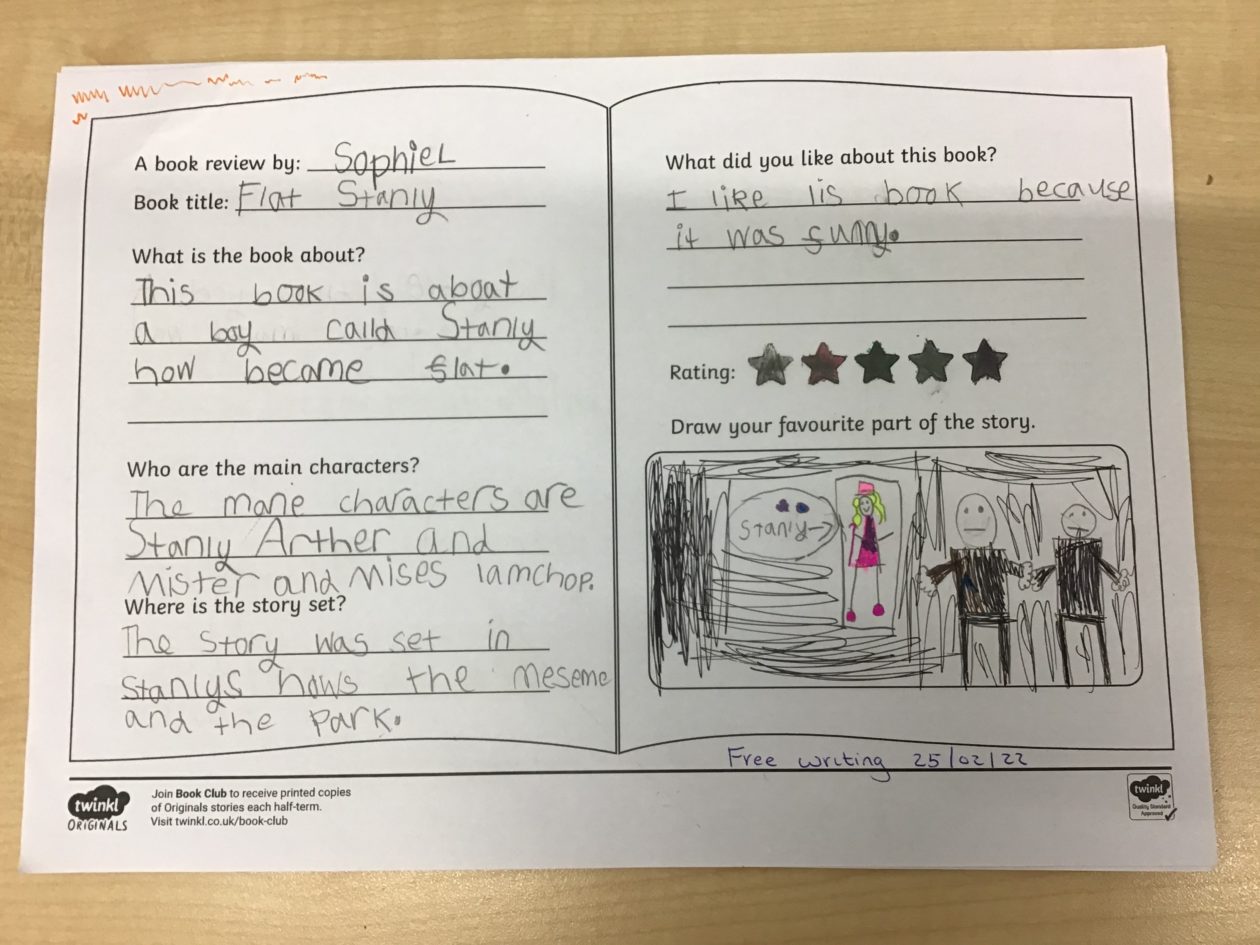 A book review by: SophieL
Book title: Flat Stanly
What is the book about?
This book is aboat
a boy calld Stanly
how became flat.
Who are the main characters?
The mane characters are
Stanly Arther and
Mister and Mises lamchop.
Where is the story set?
The story was set in
Stanlys hows the meseme
and the park.
What did you like about this book?
I like lis book because
it was funny.
Rating:
Draw your favourite part of the story.
Stanly→
Free writing 25/02/22
twinkl
ORIGINALS
Join Book Club to receive printed copies
of Originals stories each half-term.
Visit twinkl.co.uk/book-club
twinkl
Quality Standard
Approved